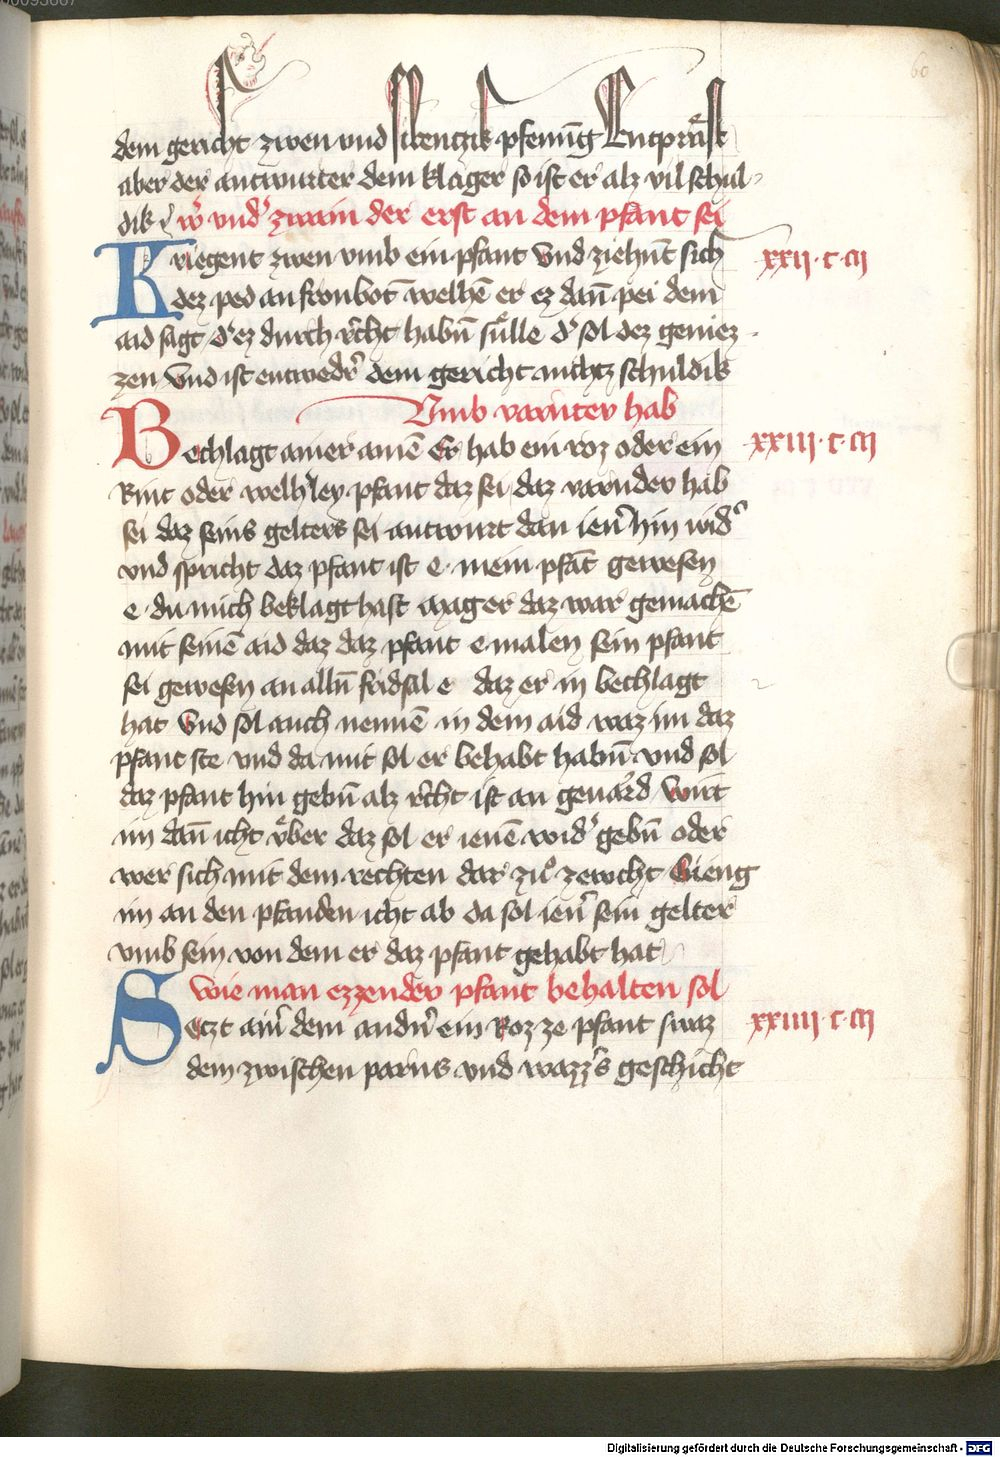 60
dem gericht zwen und sibenczik pfening Entpräst
aber der antwurter dem klager so ist er alz vil schul-
dik wˀ undˀ zwain der erst an dem pfant sei
Kriegent zwen umb ein pfant und ziehnt sich xxii · c · cii
dez ped an fronbotn̄ welhē er ez dan̄ pei dem
aid sagt dˀ ez durch rˀcht habn̄ sulle dˀ sol dez geniez
zen und ist entwedˀ dem gericht nichcz schuldik
Umb varnter hab
Bechlagt ainer ainē Er hab ein roz oder ein xxiii · c · cii
Rint oder welhˀley pfant daz sei daz varnder hab
sei daz seins gelters sei antwurt dan ienˀ hin widˀ
und spricht daz pfant ist e mein pfāt gewesen
e du mich beklagt hast mag er daz war gemachē
mit seinē aid daz daz pfant e malen sein pfant
sei gewesen an alln̄ fridsal e daz er in bechlagt
hat und sol auch nennē in dem aid waz im daz
pfant ste und da mit sol er behabt habn̄ und sol
daz pfant hin gebn̄ alz rˀcht ist an geuard wirt
im dan̄ icht vber daz sol er ienē widˀ gebn̄ oder
wer sich mit dem rechten dar zuͦ zewcht Gieng
im an den pfanden icht ab da sol ienˀ sein gelter
umb sein von dem er daz pfant gehabt hat
wie man ezzender pfant behalten sol
Seczt ainˀ dem andnˀ ein Roz ze pfant swaz xxiiii · c · cii
dem zwischen parns und wazzˀs geschicht
Digitalisierung gefördert durch die Deutsche Forschungsgemeinschaft - DFG